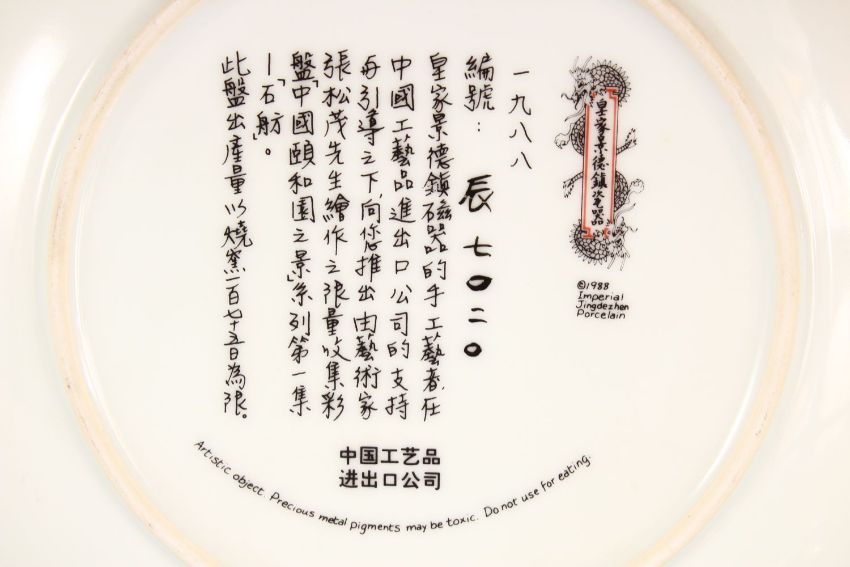 皇家景德鎮瓷器
©1988
Imperial
Jingdezhen
Porcelain
一九八八
編號：辰七〇二〇
皇家景德鎮磁器的手工藝者在
中國工藝品進出口公司的支持
與引導之下,向您推出由藝術家
張松茂先生繪作之限量收集彩
盤「中國頤和園之景」系列第一集
—「石舫」。
此盤出產量以燒窯一百七十五日為限。
中国工艺品
进出口公司
Artistic object. Precious metal pigments may be toxic. Do not use for eating.